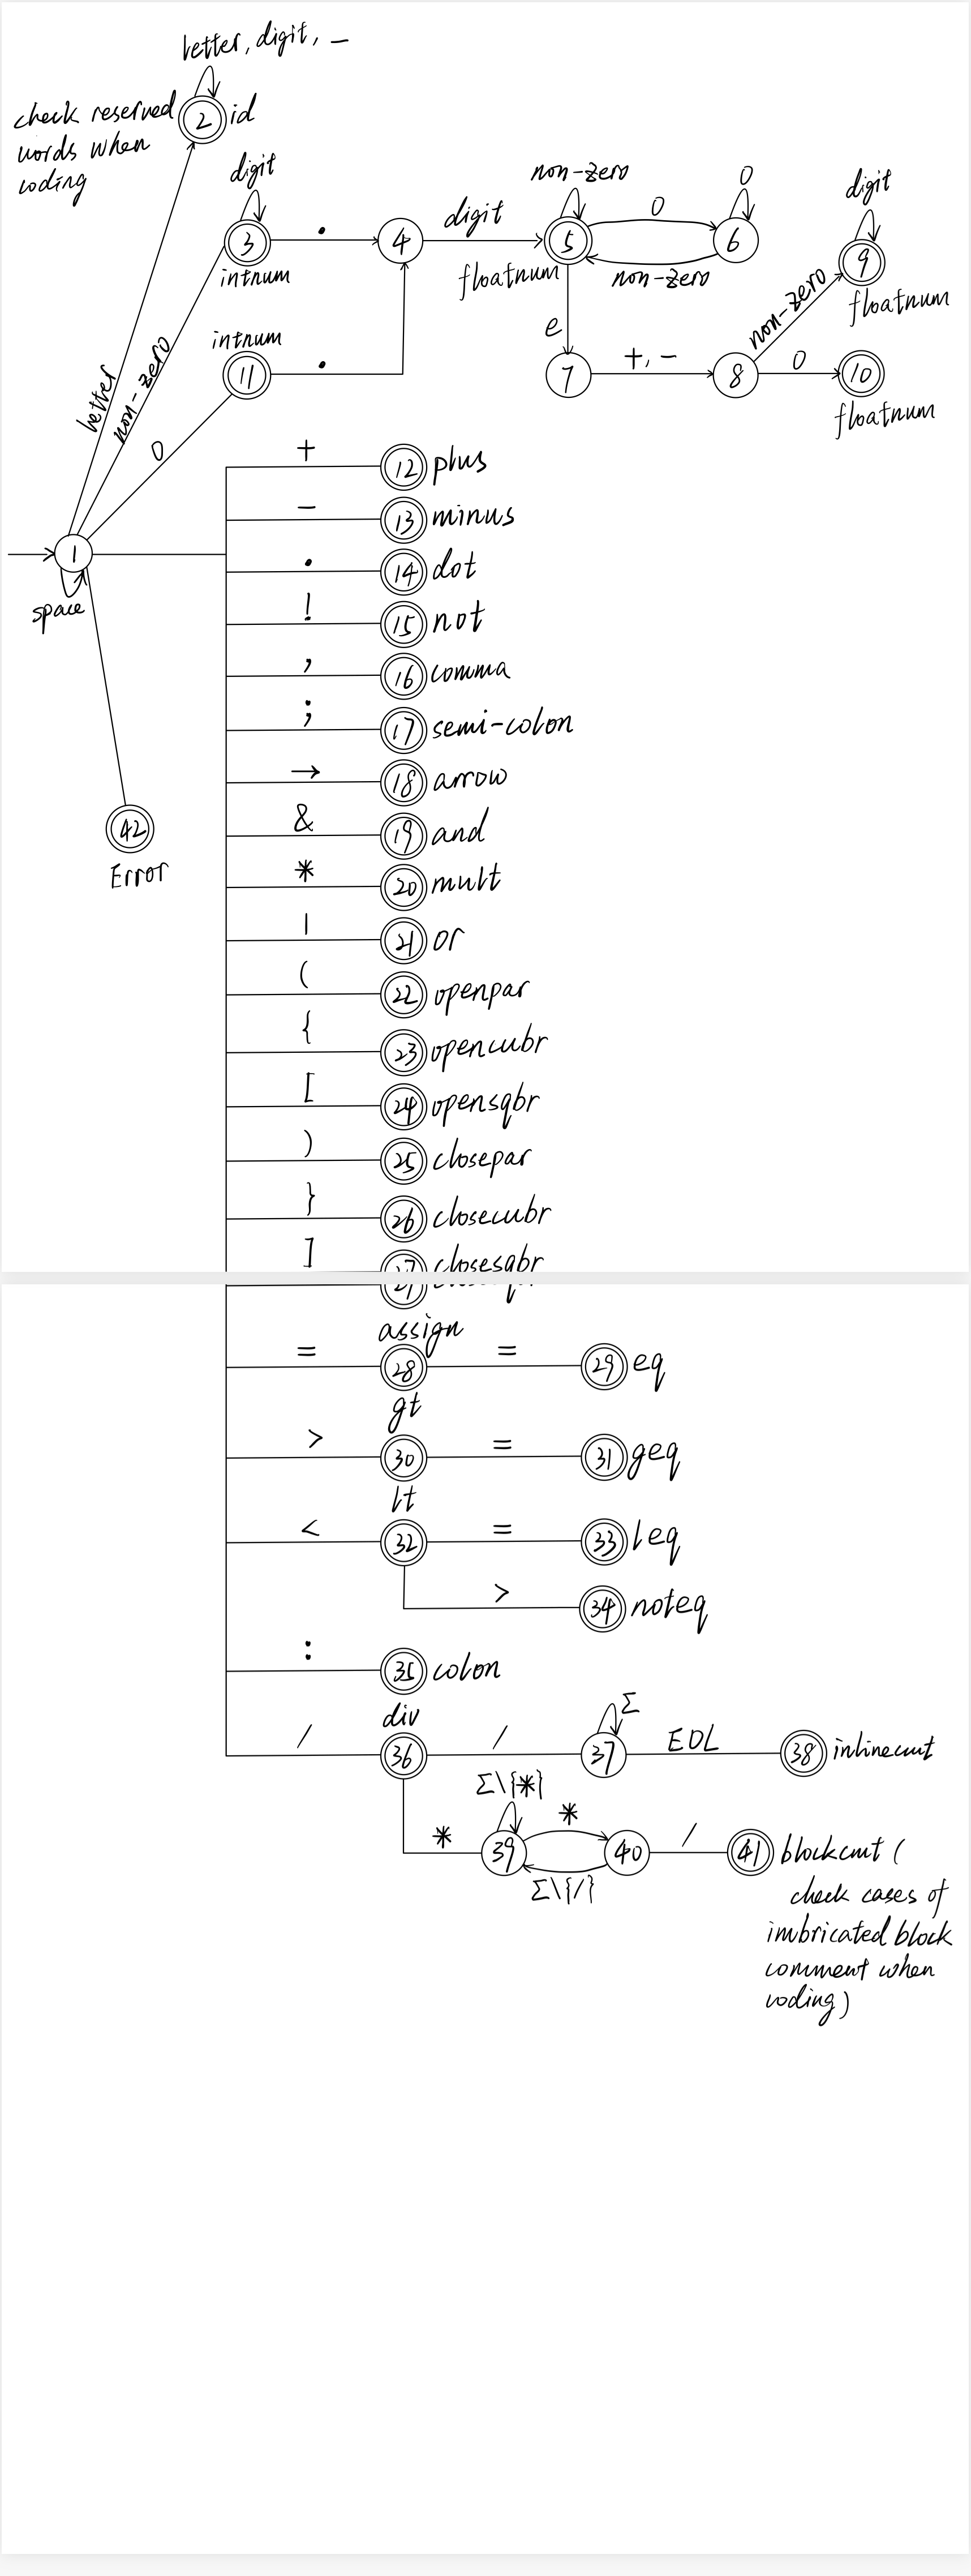 letter, digit, _
check reserved
words when
coding
2 id
digit
3
intnum
.
4
digit
non-zero
5
floatnum
0
6
0
non-zero
digit
9
floatnum
non-zero
e
7
+, -
8
0
10
floatnum
intnum
11
.
letter
non-zero
0
1
space
42
Error
+ 12 plus
- 13 minus
. 14 dot
! 15 not
, 16 comma
; 17 semi-colon
→ 18 arrow
& 19 and
* 20 mult
| 21 or
( 22 openpar
{ 23 opencubr
[ 24 opensqbr
) 25 closepar
} 26 closecubr
] 27 closesqbr
assign
= 28 = 29 eq
gt
> 30 = 31 geq
lt
< 32 = 33 leq
> 34 noteq
: 35 colon
div
/ 36 / 37 Σ EOL 38 inlinecmt
Σ\{*}
* 39 * 40 / 41 blockcmt (
Σ\{/}
check cases of
imbricated block
comment when
coding)